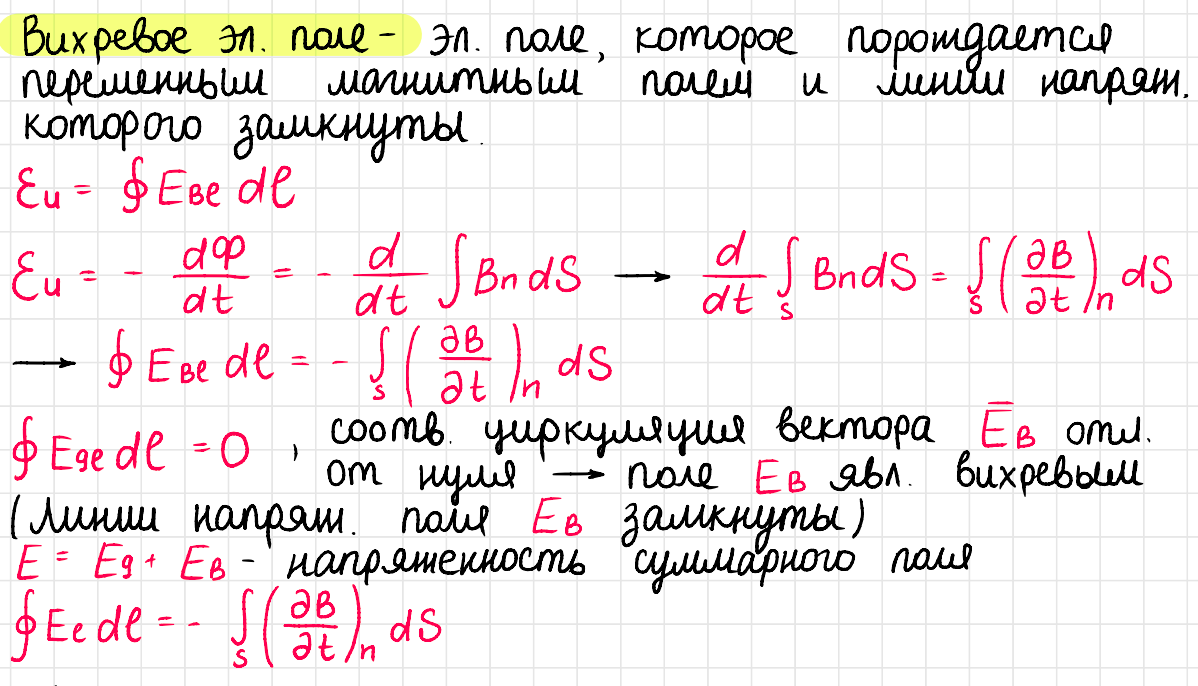 Вихревое эл. поле - эл. поле, которое порождается
переменным магнитным полем и линии напряж.
которого замкнуты.
Ɛи = ∮ Eвℓ dℓ
Ɛи = - dФ/dt = - d/dt ∫ Bn dS → d/dt ∫s Bn dS = ∫s (∂B/∂t)n dS
→ ∮ Eвℓ dℓ = - ∫s (∂B/∂t)n dS
∮ Egℓ dℓ = 0 , соотв. циркуляция вектора E̅в отл.
от нуля → поле Eв явл. вихревым
(Линии напряж. поля Eв замкнуты)
E = Eg + Eв - напряженность суммарного поля
∮ Eℓ dℓ = - ∫s (∂B/∂t)n dS